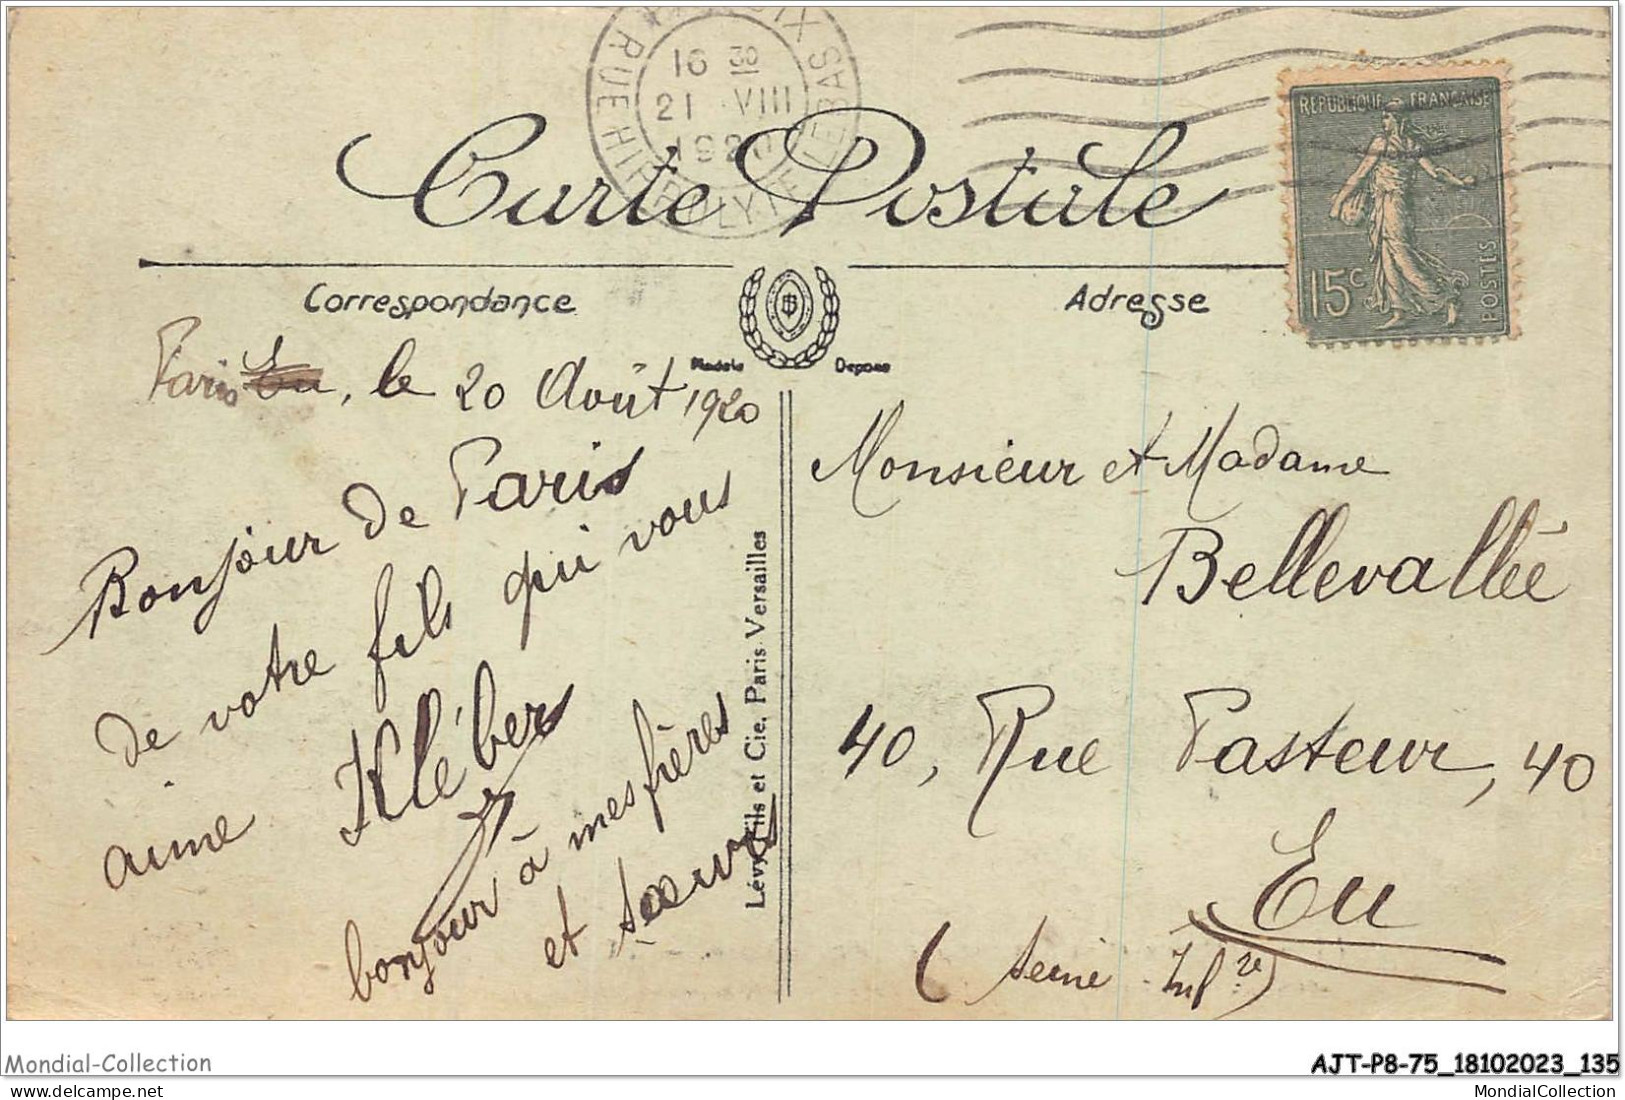 RUE HIPPOLYTE LEBAS
16 30
21 VIII
1920
REPUBLIQUE FRANÇAISE
15c
POSTES
Carte Postale
Correspondance
Adresse
Modele Depose
Paris Eu, le 20 Août 1920
Bonjour de Paris
de votre fils qui vous
aime Kléber
bonjour à mes frères
et soeurs
Lévy Fils et Cie, Paris-Versailles
Monsieur et Madame
Bellevallée
40, Rue Pasteur, 40
Eu
(Seine Infre)
Mondial-Collection
AJT-P8-75_18102023_135
MondialCollection